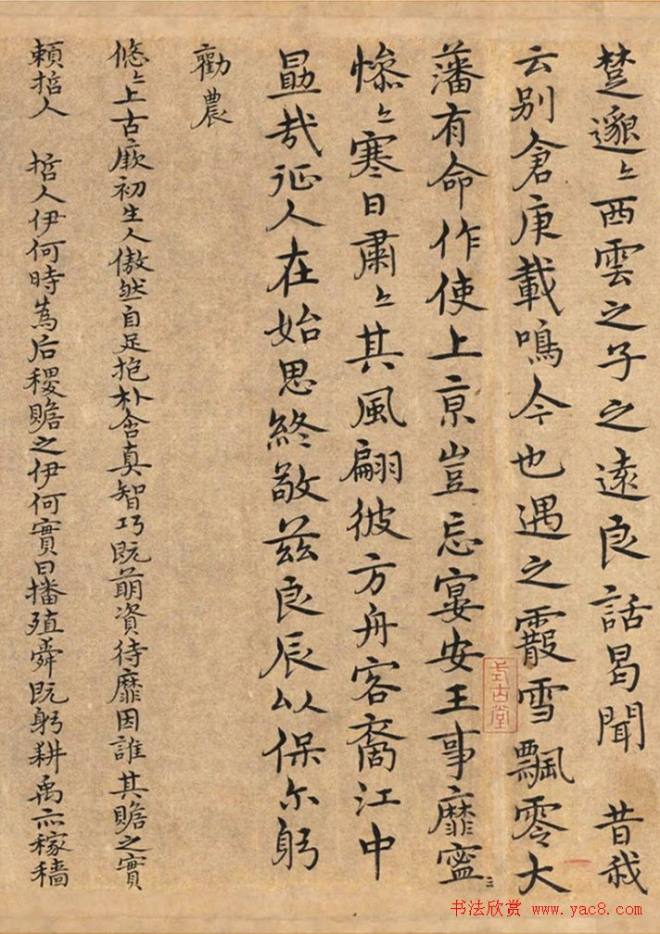 楚邈〻西雲之子之遠良話曷聞 昔我
云别倉庚載鳴今也遇之霰雪飄零大
藩有命作使上京豈忘宴安王事靡寧
慘〻寒日肅〻其風翩彼方舟客裔江中
勗哉征人在始思終敬茲良辰以保尔躬
勸農
悠〻上古厥初生人傲然自足抱朴含真智巧既萌資待靡因誰其贍之實
賴哲人 哲人伊何時為后稷贍之伊何實曰播殖舜既躬耕禹亦稼穡
式古堂
书法欣赏 www.yac8.com